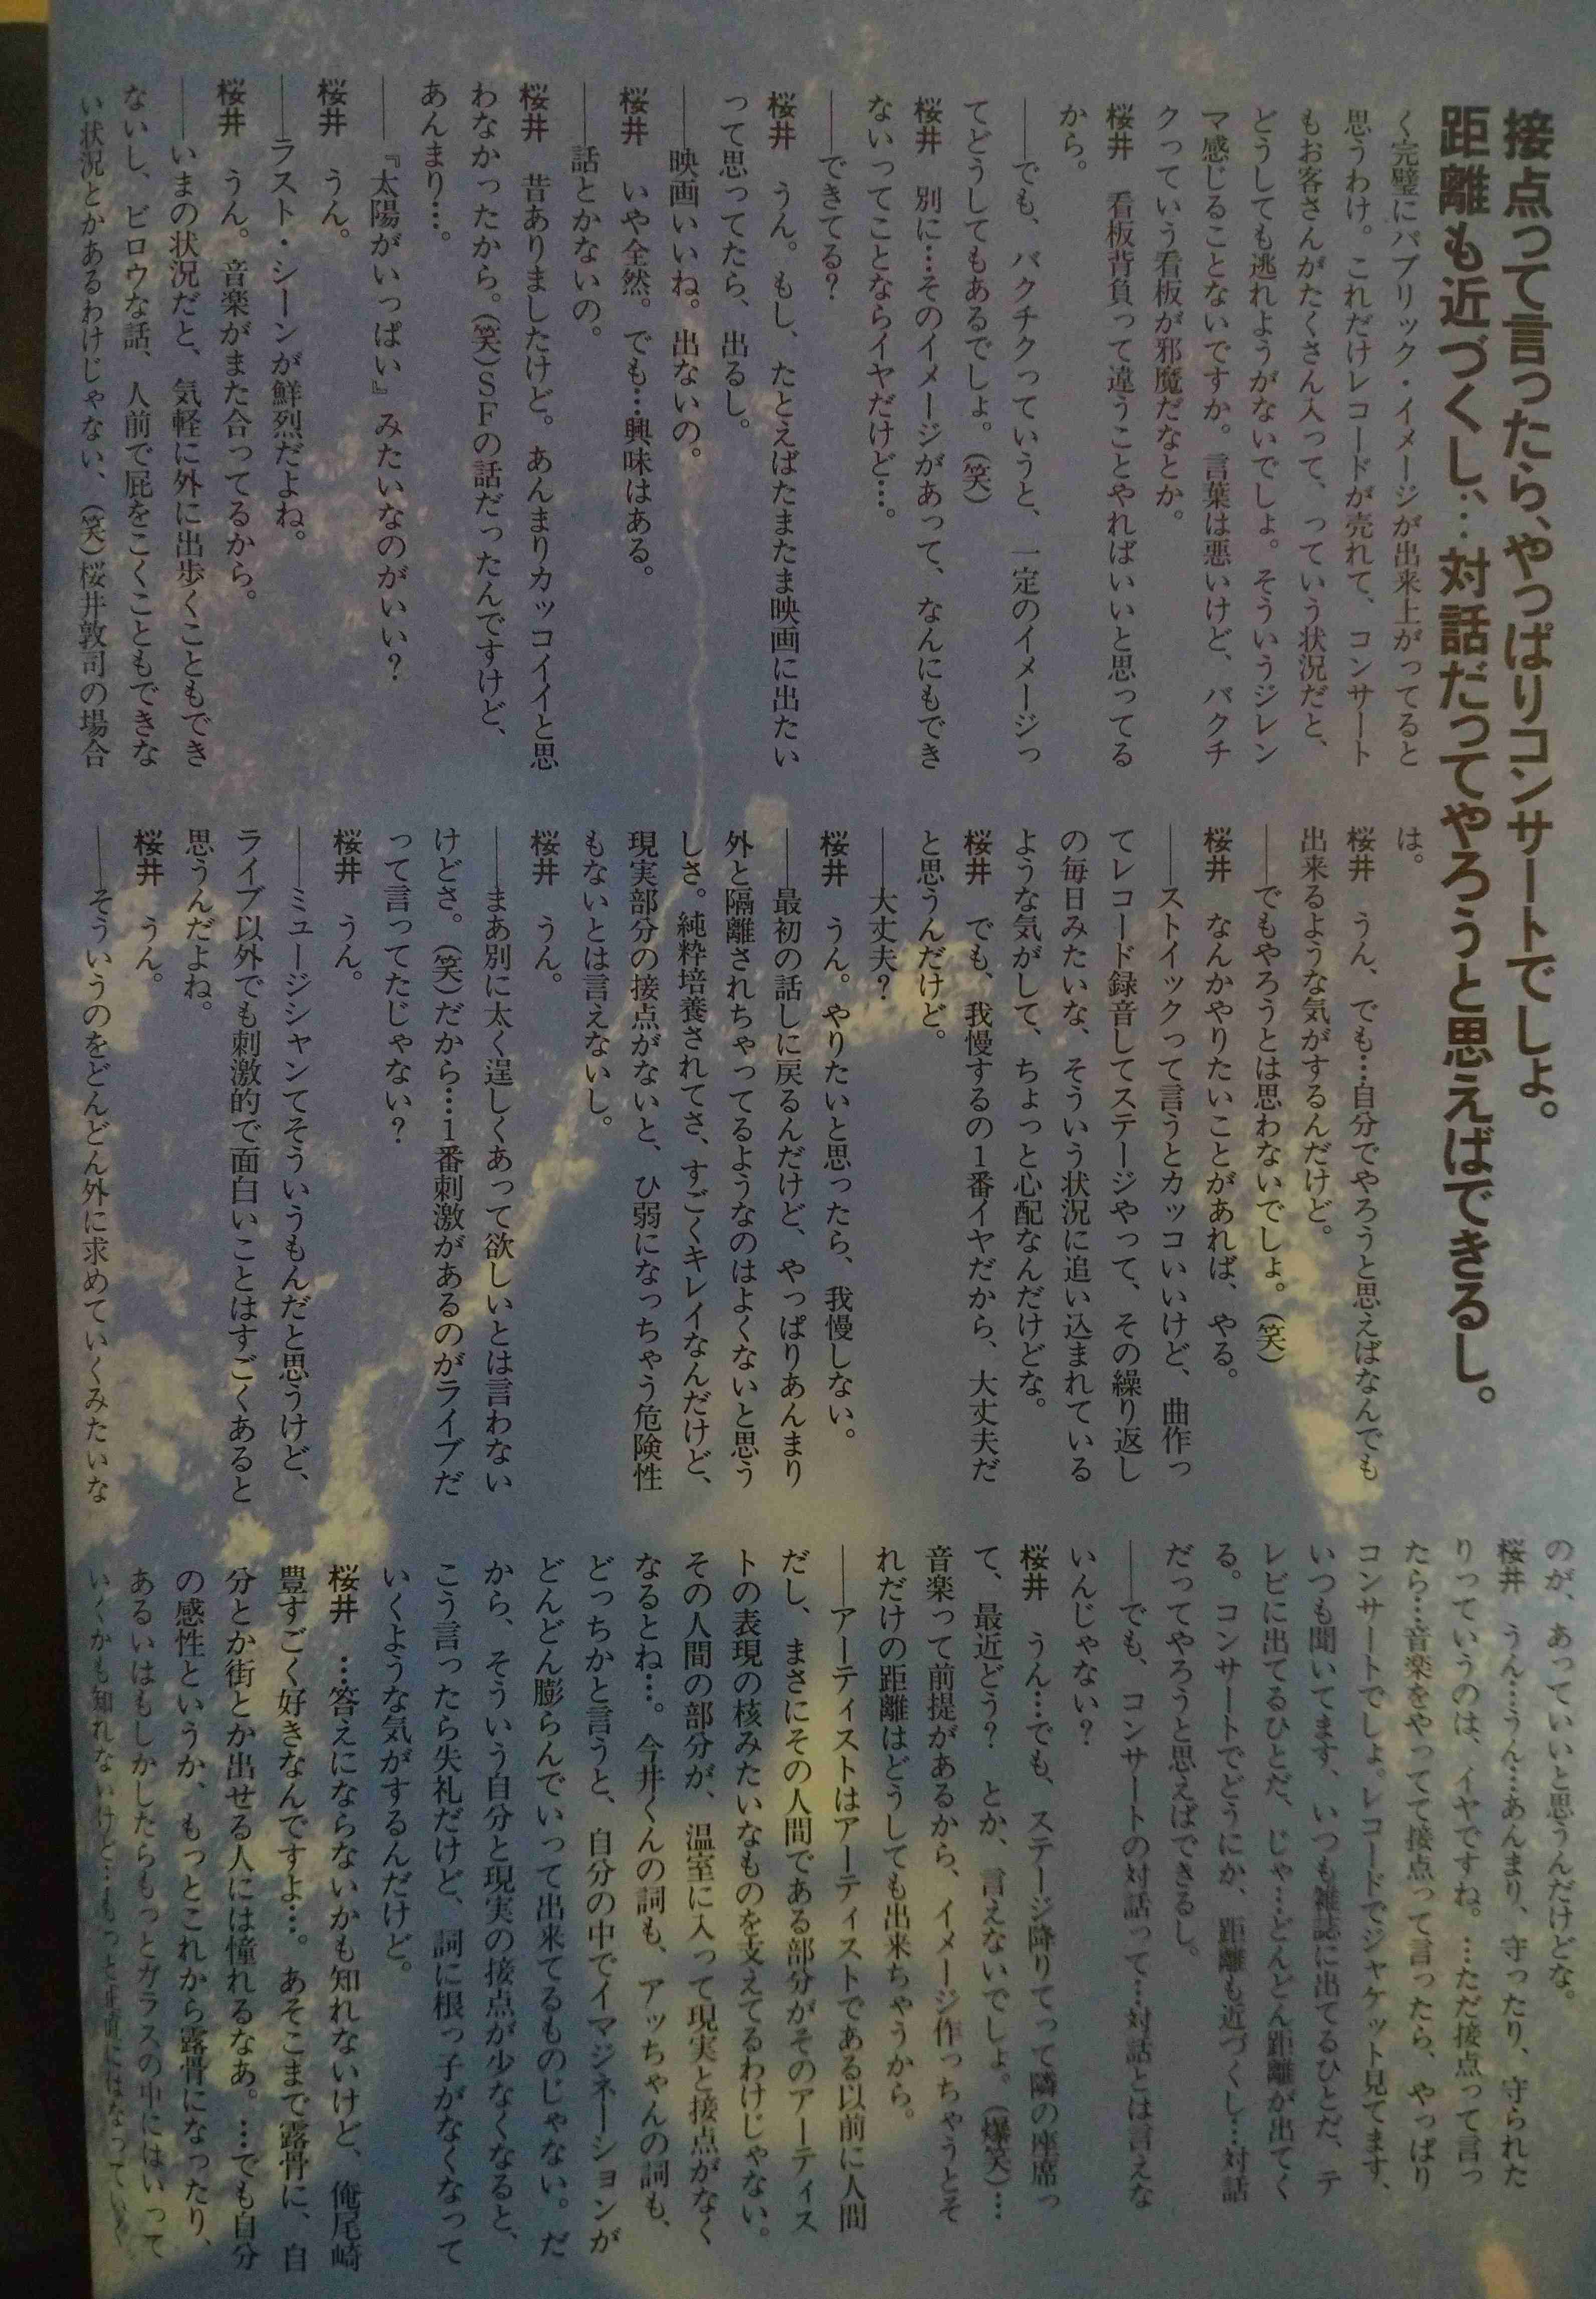 接点って言ったら、やっぱりコンサートでしょ。
距離も近づくし、…対話だってやろうと思えばできるし。
く完璧にパブリック・イメージが出来上がってると
思うわけ。これだけレコードが売れて、コンサート
もお客さんがたくさん入って、っていう状況だと、
どうしても逃れようがないでしょ。そういうジレン
マ感じることないですか。言葉は悪いけど、バクチ
クっていう看板が邪魔だなとか。
桜井　看板背負って違うことやればいいと思ってる
から。
――でも、バクチクっていうと、一定のイメージっ
てどうしてもあるでしょ。（笑）
桜井　別に…そのイメージがあって、なんにもでき
ないってことならイヤだけど…。
――できてる？
桜井　うん。もし、たとえばたまたま映画に出たい
って思ってたら、出るし。
――映画いいね。出ないの。
桜井　いや全然。でも…興味はある。
――話とかないの。
桜井　昔ありましたけど。あんまりカッコイイと思
わなかったから。（笑）ＳＦの話だったんですけど、
あんまり…。
――『太陽がいっぱい』みたいなのがいい？
桜井　うん。
――ラスト・シーンが鮮烈だよね。
桜井　うん。音楽がまた合ってるから。
――いまの状況だと、気軽に外に出歩くこともでき
ないし、ビロウな話、人前で屁をこくこともできな
い状況とかあるわけじゃない、（笑）桜井敦司の場合
は。
桜井　うん、でも…自分でやろうと思えばなんでも
出来るような気がするんだけど。
――でもやろうとは思わないでしょ。（笑）
桜井　なんかやりたいことがあれば、やる。
――ストイックって言うとカッコいいけど、曲作っ
てレコード録音してステージやって、その繰り返し
の毎日みたいな、そういう状況に追い込まれている
ような気がして、ちょっと心配なんだけどな。
桜井　でも、我慢するの１番イヤだから、大丈夫だ
と思うんだけど。
――大丈夫？
桜井　うん。やりたいと思ったら、我慢しない。
――最初の話しに戻るんだけど、やっぱりあんまり
外と隔離されちゃってるようなのはよくないと思う
しさ。純粋培養されてさ、すごくキレイなんだけど、
現実部分の接点がないと、ひ弱になっちゃう危険性
もないとは言えないし。
桜井　うん。
――まあ別に太く逞しくあって欲しいとは言わない
けどさ。（笑）だから…１番刺激があるのがライブだ
って言ってたじゃない？
桜井　うん。
――ミュージシャンてそういうもんだと思うけど、
ライブ以外でも刺激的で面白いことはすごくあると
思うんだよね。
桜井　うん。
――そういうのをどんどん外に求めていくみたいな
のが、あっていいと思うんだけどな。
桜井　うん…うん…あんまり、守ったり、守られた
りっていうのは、イヤですね。…ただ接点って言っ
たら…音楽をやってて接点って言ったら、やっぱり
コンサートでしょ。レコードでジャケット見てます、
いつも聞いてます、いつも雑誌に出てるひとだ、テ
レビに出てるひとだ、じゃ…どんどん距離が出てく
る。コンサートでどうにか、距離も近づくし…対話
だってやろうと思えばできるし。
――でも、コンサートの対話って…対話とは言えな
いんじゃない？
桜井　うん…でも、ステージ降りてって隣の座席っ
て、最近どう？　とか、言えないでしょ。（爆笑）…
音楽って前提があるから、イメージ作っちゃうとそ
れだけの距離はどうしても出来ちゃうから。
――アーティストはアーティストである以前に人間
だし、まさにその人間である部分がそのアーティス
トの表現の核みたいなものを支えてるわけじゃない。
その人間の部分が、温室に入って現実と接点がなく
なるとね…。今井くんの詞も、アッちゃんの詞も、
どっちかと言うと、自分の中でイマジネーションが
どんどん膨らんでいって出来てるものじゃない。だ
から、そういう自分と現実の接点が少なくなると、
こう言ったら失礼だけど、詞に根っ子がなくなって
いくような気がするんだけど。
桜井　…答えにならないかも知れないけど、俺尾崎
豊すごく好きなんですよ…。あそこまで露骨に、自
分とか街とか出せる人には憧れるなあ。…でも自分
の感性というか、もっとこれから露骨になったり、
あるいはもしかしたらもっとガラスの中にはいって
いくかも知れないけど…もっと正直にはなっていく